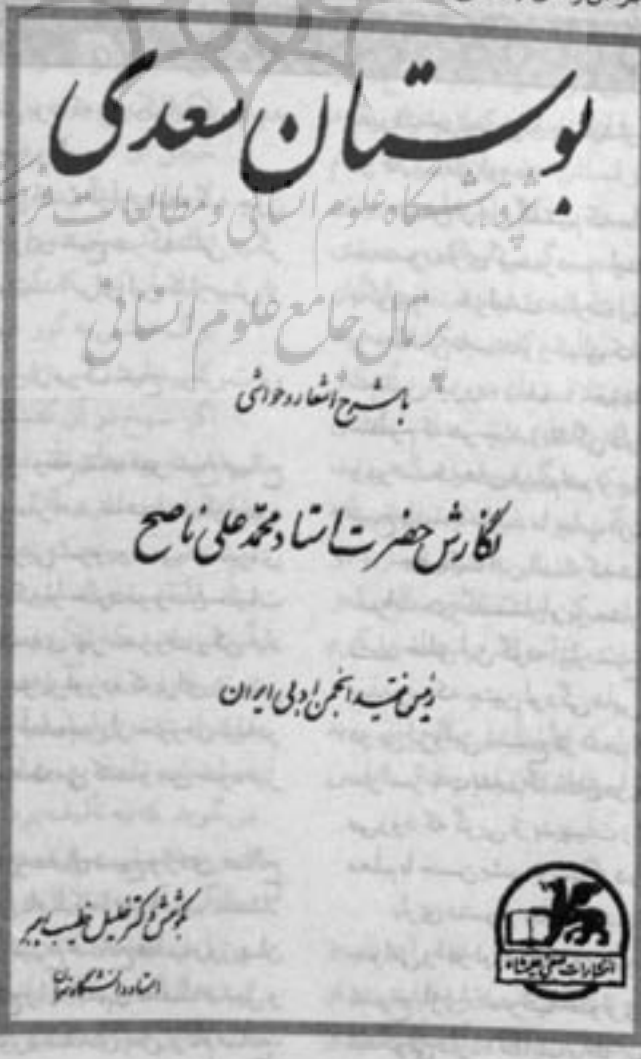 بوستان سعدی
پژوهشگاه علوم انسانی و مطالعات فرهنگ
پرتال جامع علوم انسانی
با شرح اشعار و حواشی
نگارش حضرت استاد محمد علی ناصح
رئیس فقید انجمن ادبی ایران
بکوشش دکتر خلیل خطیب رهبر
استاد دانشگاه تهران
انتشارات صفی علیشاه